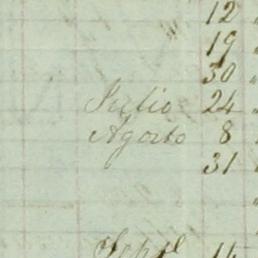 12 "
19 "
30 "
Julio 24 "
Agosto 8
31 "
Sepe 14